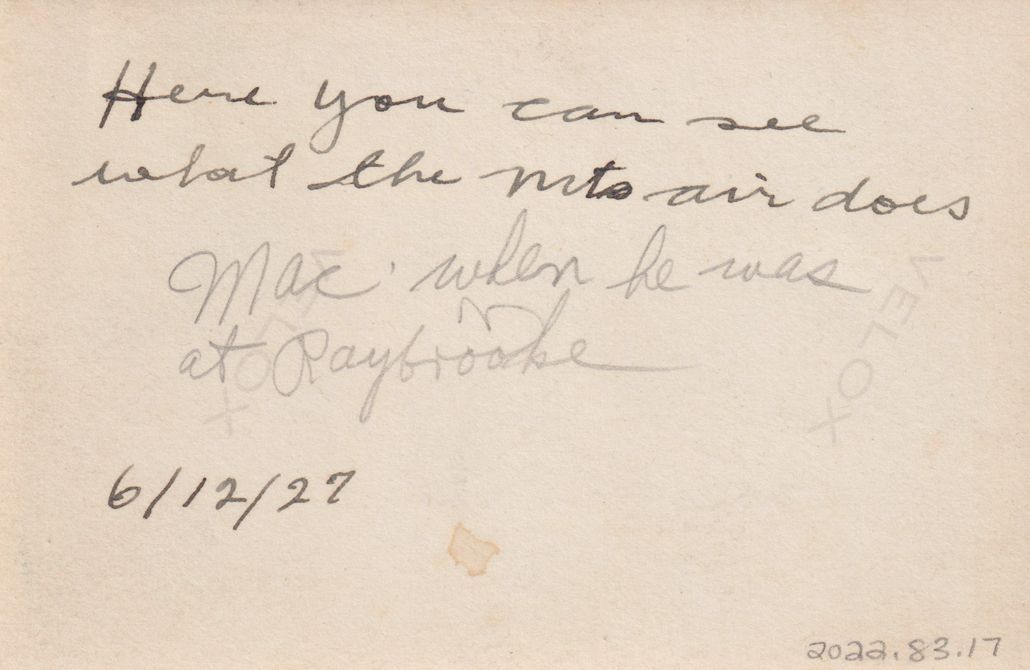 Here you can see
what the mts air does
Mac when he was
at Raybrooke
VELOX
VELOX
6/12/27
2022.83.17